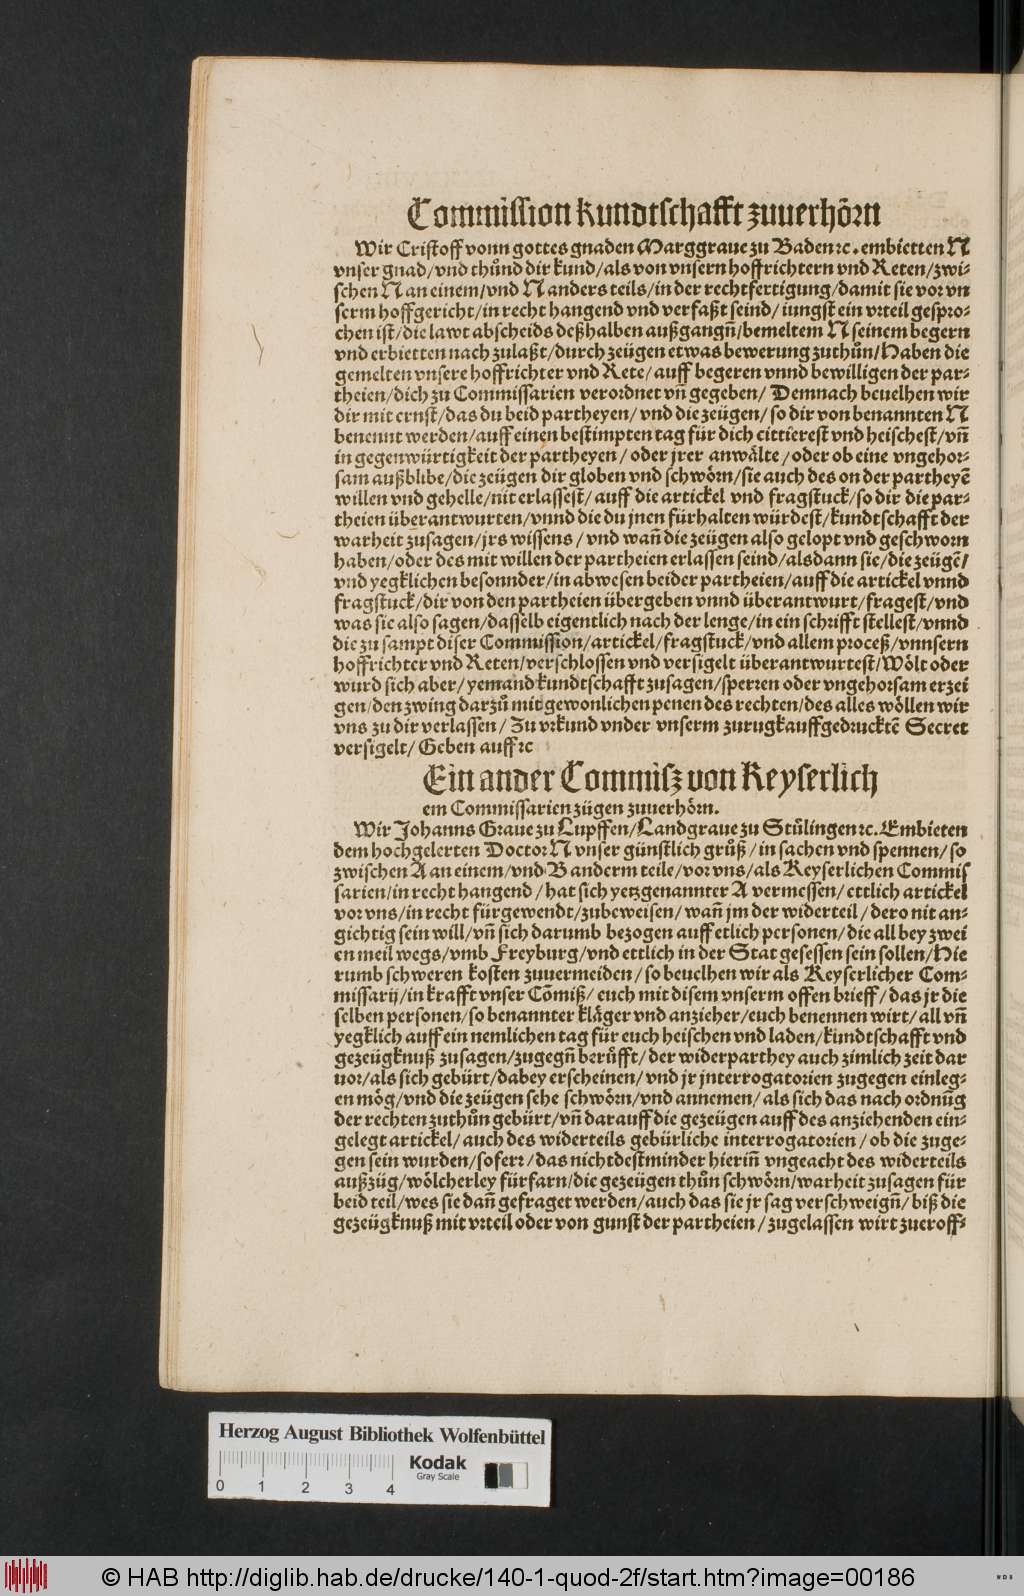 Commission kundtschafft zuuerhörn
Wir Cristoff vonn gottes gnaden Marggraue zu Baden ꝛc. embietten N
vnser gnad/vnd thůnd dir kund/als von vnsern hoffrichtern vnd Reten/zwi-
schen N an einem/vnd N anders teils/in der rechtfertigung/damit sie vor vn
serm hoffgericht/in recht hangend vnd verfaßt seind/iungst ein vrteil gespro-
chen ist/die lawt abscheids deßhalben außgangn̄/bemeltem N seinem begern
vnd erbietten nach zulaßt/durch zeügen etwas bewerung zuthůn/Haben die
gemelten vnsere hoffrichter vnd Rete/auff begeren vnnd bewilligen der par-
theien/dich zu Commissarien verordnet vn̄ gegeben/ Demnach beuelhen wir
dir mit ernst/das du beid partheyen/ vnd die zeügen/ so dir von benannten N
benennt werden/auff einen bestimpten tag für dich cittierest vnd heischest/vn̄
in gegenwürtigkeit der partheyen/ oder jrer anwälte/oder ob eine vngehor-
sam außblibe/die zeügen dir globen vnd schwörn/sie auch des on der partheyē
willen vnd gehelle/nit erlassest/ auff die artickel vnd fragstuck/so dir die par-
theien überantwurten/vnnd die du jnen fürhalten würdest/kundtschafft der
warheit zusagen/jrs wissens/ vnd wan̄ die zeügen also gelopt vnd geschworn
haben/oder des mit willen der partheien erlassen seind/alsdann sie/die zeügē/
vnd yegklichen besonnder/in abwesen beider partheien/auff die artickel vnnd
fragstuck/dir von den partheien übergeben vnnd überantwurt/fragest/vnd
was sie also sagen/dasselb eigentlich nach der lenge/in ein schrifft stellest/vnnd
die zu sampt diser Commission/artickel/fragstuck/vnd allem proceß/vnnsern
hoffrichter vnd Reten/verschlossen vnd versigelt überantwurtest/Wölt oder
wurd sich aber/ yemand kundtschafft zusagen/sperren oder vngehorsam erzei
gen/den zwing darzů mit gewonlichen penen des rechten/des alles wöllen wir
vns zu dir verlassen/ Zu vrkund vnder vnserm zurugkauffgedrucktē Secret
versigelt/ Geben auff ꝛc
Ein ander Commisz von Keyserlich
em Commissarien zügen zuuerhörn.
Wir Johanns Graue zu Lupffen/Landgraue zu Stůlingen ꝛc. Embieten
dem hochgelerten Doctor N vnser günstlich grůß/in sachen vnd spennen/ so
zwischen A an einem/vnd B anderm teile/vor vns/als Keyserlichen Commis
sarien/in recht hangend/hat sich yetzgenannter A vermessen/ ettlich artickel
vor vns/in recht fürgewendt/zubeweisen/ wan̄ jm der widerteil/dero nit an-
gichtig sein will/vn̄ sich darumb bezogen auff etlich personen/die all bey zwei
en meil wegs/vmb Freyburg/vnd ettlich in der Stat gesessen sein sollen/Hie
rumb schweren kosten zuuermeiden/so beuelhen wir als Keyserlicher Com-
missarij/in krafft vnser Cōmiß/ euch mit disem vnserm offen brieff/das jr die
selben personen/so benannter kläger vnd anzieher/euch benennen wirt/all vn̄
yegklich auff ein nemlichen tag für euch heischen vnd laden/kundtschafft vnd
gezeügknuß zusagen/zugegn̄ berůfft/der widerparthey auch zimlich zeit dar
uor/als sich gebürt/dabey erscheinen/ vnd jr jnterrogatorien zugegen einleg-
en mög/vnd die zeügen sehe schwörn/vnd annemen/als sich das nach ordnūg
der rechten zuthůn gebürt/vn̄ darauff die gezeügen auff des anziehenden ein-
gelegt artickel/ auch des widerteils gebürliche interrogatorien/ ob die zuge-
gen sein wurden/soferr/das nichtdestminder hierin̄ vngeacht des widerteils
außzüg/wölcherley fürfarn/die gezeügen thůn schwörn/warheit zusagen für
beid teil/wes sie dan̄ gefraget werden/auch das sie jr sag verschweign̄/biß die
gezeügknuß mit vrteil oder von gunst der partheien/zugelassen wirt zueroff-
Herzog August Bibliothek Wolfenbüttel
Kodak
Gray Scale
0 1 2 3 4
© HAB http://diglib.hab.de/drucke/140-1-quod-2f/start.htm?image=00186